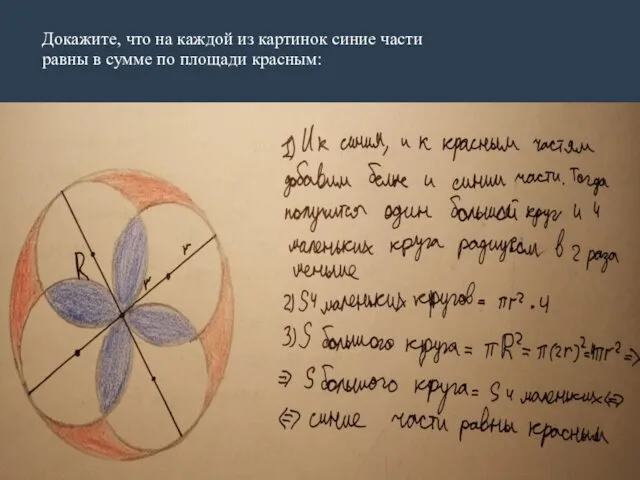 Докажите, что на каждой из картинок синие части
равны в сумме по площади красным:
1) И к синим, и к красным частям
добавим белые и синии части. Тогда
получится один большой круг и 4
маленьких круга радиусом в 2 раза
меньше
2) S 4 маленьких кругов = πr² · 4
3) S большого круга = πR² = π(2r)² = 4πr² =>
=> S большого круга = S 4 маленьких <=>
<=> синие части равны красным
R
r
r